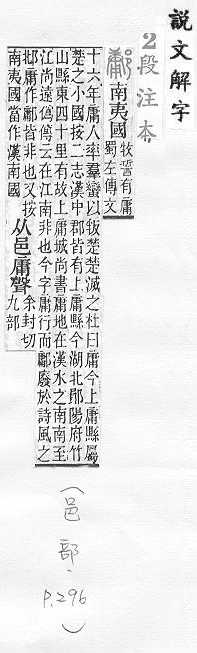 說文解字
2段注本
鄘 南夷國 牧誓有庸
蜀左傳文
十六年庸人率羣蠻以叛楚楚滅之杜曰庸今上庸縣屬
楚之小國按二志漢中郡皆有上庸縣今湖北鄖陽府竹
山縣東四十里有故上庸城尚書庸地在漢水之南南至
江尚遠僞傳云在江南非也今字庸行而鄘廢於詩風之
邶庸作鄘皆非也又按
南夷國當作漢南國
从邑庸聲 余封切
九部
(邑部、P.296)